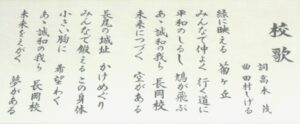 校歌
詞 高木 茂
曲 田村しげる
緑に映える 葡ヶ丘
みんなで仲よく 行く道に
平和のしるし 鳩が飛ぶ
あゝ誠和の我ら 長岡校
未来につづく 空がある
長尾の城址 かけめぐり
みんなで鍛える この身体
小さい胸に 希望わく
あゝ誠和の我ら 長岡校
未来をえがく 夢がある